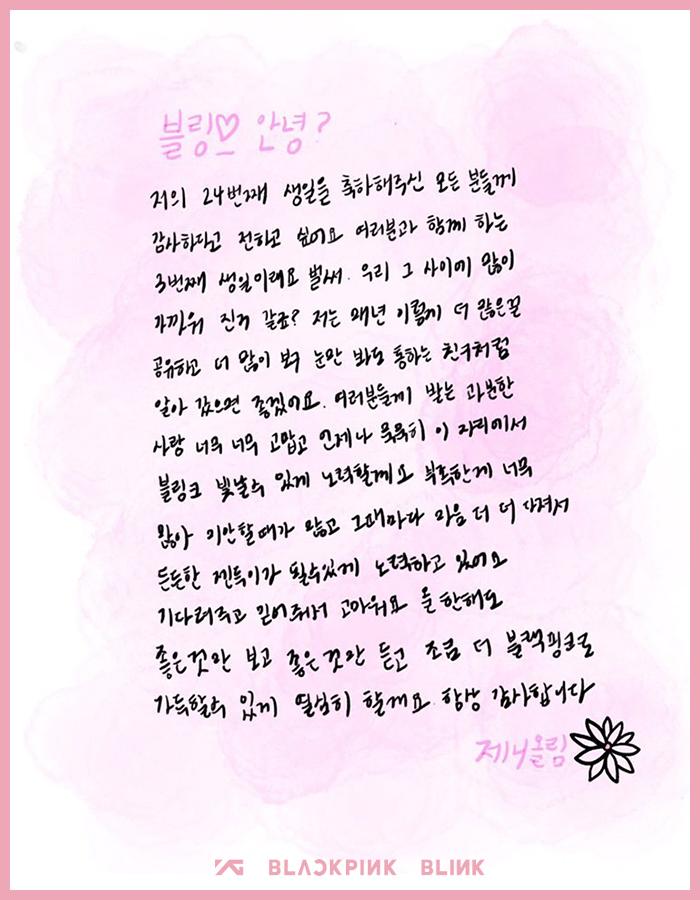 블링♡ 안녕?
저의 24번째 생일을 축하해주신 모든 분들께
감사하다고 전하고 싶어요 여러분과 함께 하는
3번째 생일이래요 벌써. 우리 그 사이에 많이
가까워 진거 같죠? 저는 매년 이렇게 더 많은걸
공유하고 더 많이 봐 눈만 봐도 통하는 친구처럼
알아 갔으면 좋겠어요. 여러분들께 받는 과분한
사랑 너무 너무 고맙고 언제나 묵묵히 이 자리에서
블링크 빛날수 있게 노력할께요 부족한게 너무
많아 미안할때가 많고 그때마다 마음 더 더 다져서
든든한 젠득이가 될수있게 노력하고 있어요
기다려주고 믿어줘서 고마워요 올 한해도
좋은것만 보고 좋은것만 듣고 조금 더 블랙핑크로
가득할수 있게 열심히 할게요 항상 감사합니다
제니올림
YG BLACKPINK BLINK